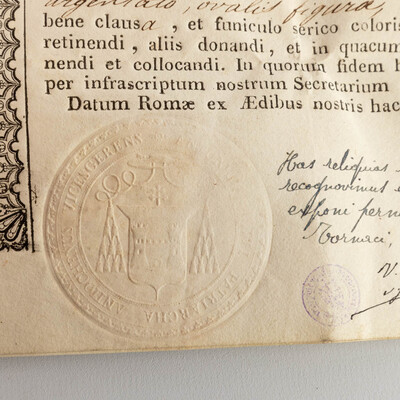 argentato, ovalis figuræ,
bene clausa, et funiculo serico coloris
retinendi, aliis donandi, et in quacum
nendi et collocandi. In quorum fidem h
per infrascriptum nostrum Secretarium
Datum Romæ ex Ædibus nostris hac
Has reliquias
recognovimus e
exponi perm
Tornaci,
V.
PATRIARCHA ANTIOCHENUS
VICESGERENS